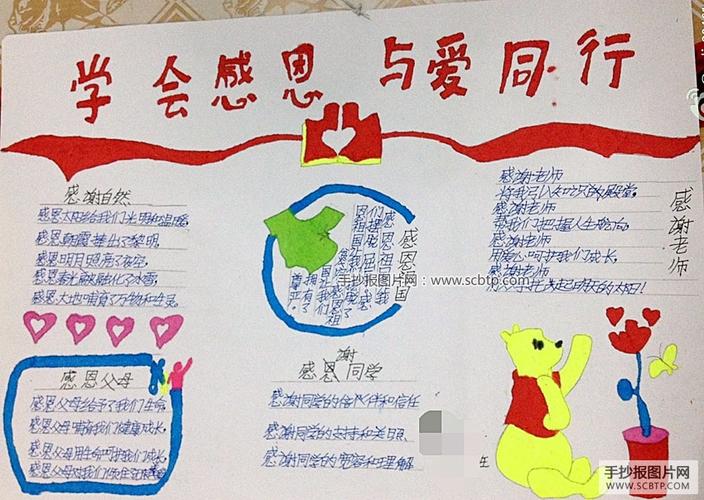 学会感恩 与爱同行
感谢自然
感恩太阳给我们光明和温暖,
感恩朝霞捧出了黎明
感恩明月照亮了夜空,
感恩春光融化了冰雪,
感恩大地哺育了万物和生灵
感恩祖国
感谢老师
感谢老师
将我引入知识的殿堂,
感谢老师
帮我们把握人生的
感谢老师
用爱心呵护我们成长,
感谢老师
感恩父母
感恩父母给予了我们生命,
感恩父母哺育我们健康成长,
感恩父母用生命呵护我们成长,
感恩父母对我们
感恩同学
谢
感谢同学的陪伴和信任
感谢同学的支持和关照,
感谢同学的宽容和理解
生
手抄报图片网:www.scbtp.com
手抄报图片网
WWW.SCBTP.COM